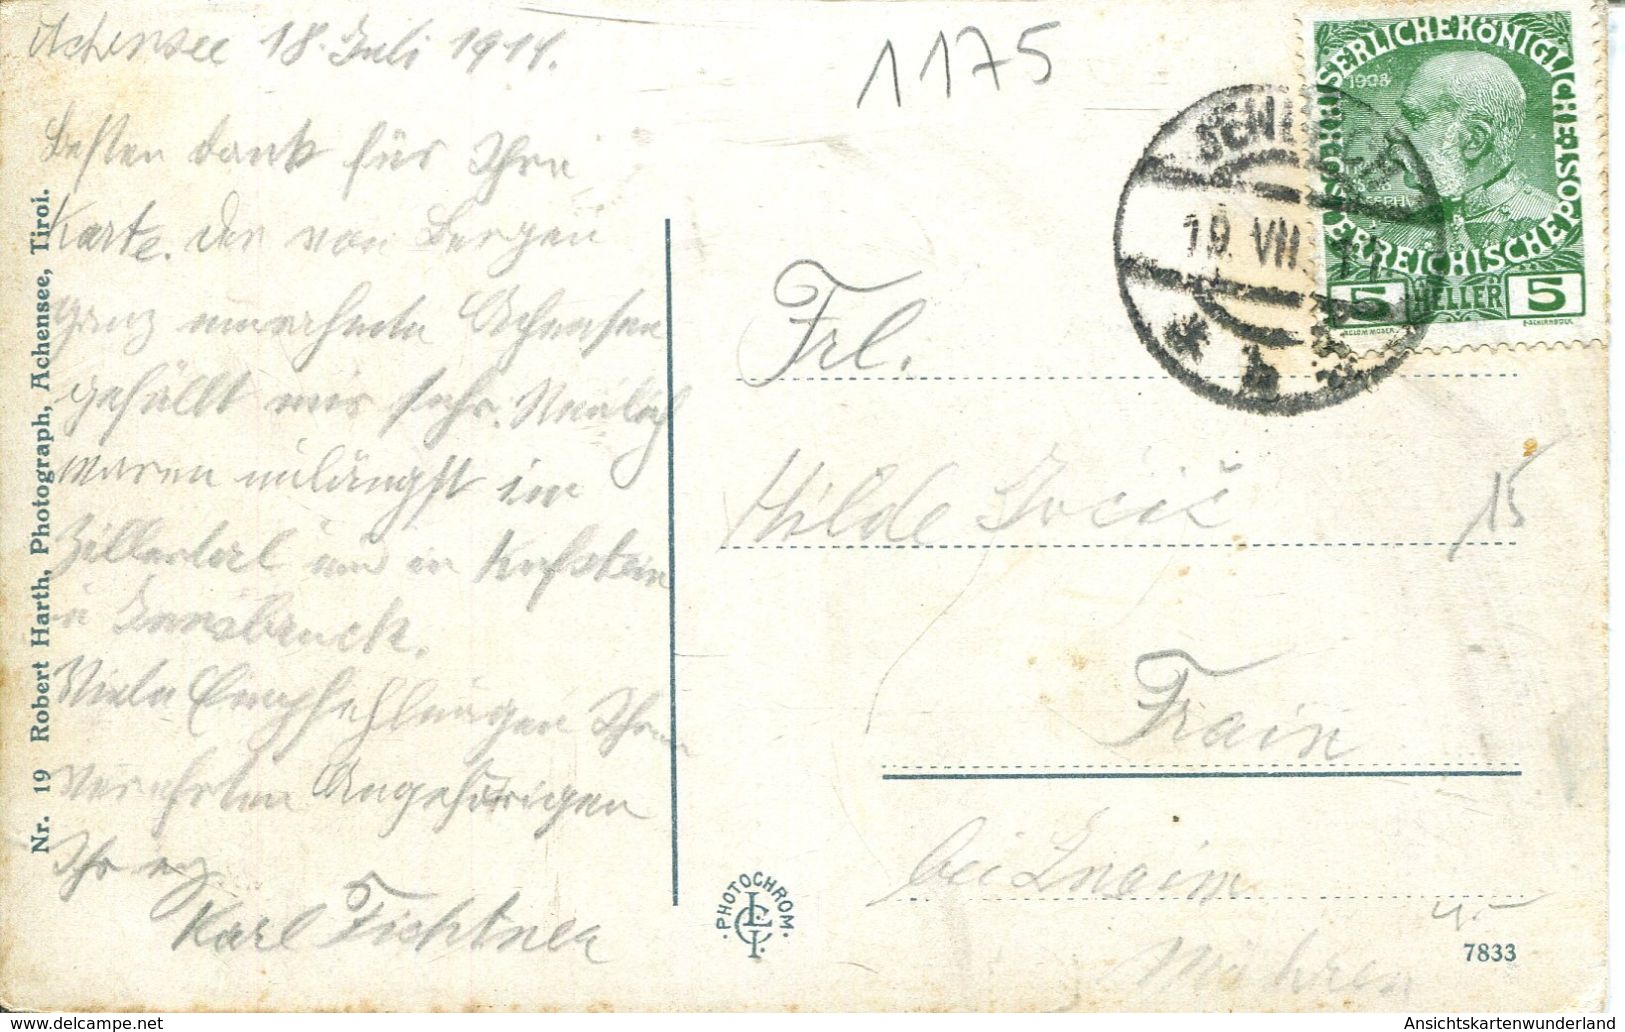 Achensee 18. Juli 1911.
1175
Besten Dank für Ihre
Karte. Der von Bergen
ganz umrahmte Achensee
gefällt mir sehr. Neulich
waren unlängst im
Zillertal und in Kufstein
in Innsbruck.
Viele Empfehlungen Ihren
verehrten Angehörigen
Ihr erg
Karl Fichtner
Nr. 19 Robert Harth, Photograph, Achensee, Tirol.
KAISERLICHE KÖNIGLICHE ÖSTERREICHISCHE POST
1908
5 HELLER 5
19. VII. 11
Frl.
Hilde
15
Frain
bei Znaim
Mähren
PHOTOCHROM.
7833
AnsichtskartenWunderland
www.delcampe.net